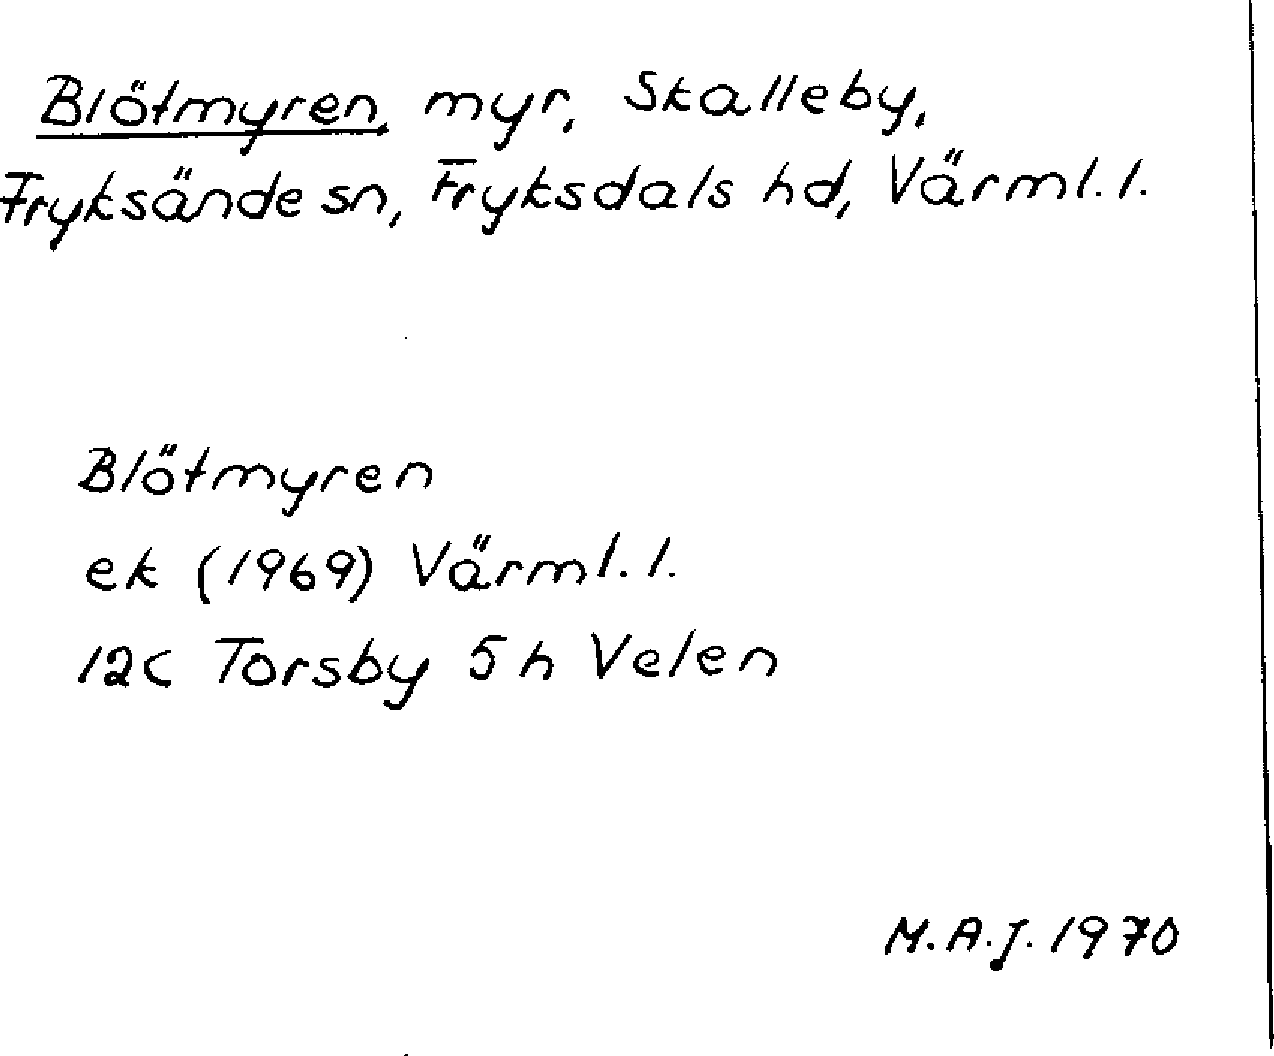 Blötmyren, myr, Skalleby,
Fryksände sn, Fryksdals hd, Värml. l.
Blötmyren
ek (1969) Värml. l.
12c Torsby 5 h Velen
M.A.J. 1970